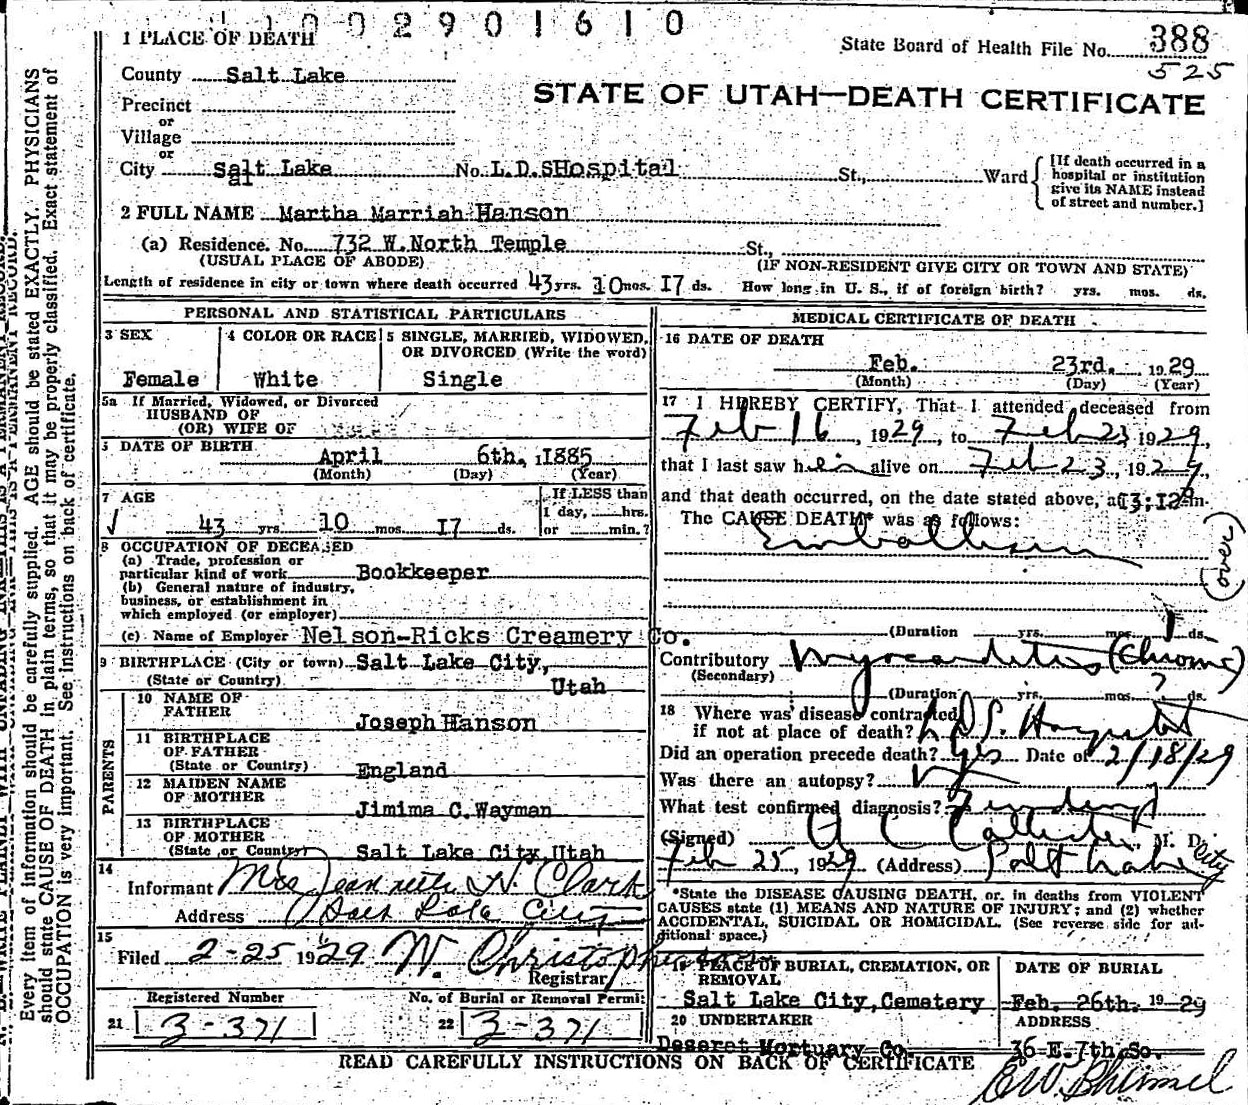 1 0 0 2 9 0 1 6 1 0
1 PLACE OF DEATH
State Board of Health File No. 388
525
County Salt Lake
STATE OF UTAH—DEATH CERTIFICATE
Precinct
or
Village
or
City Salt Lake No. L.D.SHospital St., Ward [If death occurred in a
hospital or institution
give its NAME instead
of street and number.]
2 FULL NAME Martha Marriah Hanson
(a) Residence. No. 732 W.North Temple St.,
(USUAL PLACE OF ABODE) (IF NON-RESIDENT GIVE CITY OR TOWN AND STATE)
Length of residence in city or town where death occurred 43 yrs. 10 mos. I7 ds. How long in U. S., if of foreign birth? yrs. mos. ds.
PERSONAL AND STATISTICAL PARTICULARS
3 SEX 4 COLOR OR RACE 5 SINGLE, MARRIED, WIDOWED,
OR DIVORCED (Write the word)
Female White Single
5a If Married, Widowed, or Divorced
HUSBAND OF
(OR) WIFE OF
DATE OF BIRTH
April 6th, 1885
(Month) (Day) (Year)
7 AGE If LESS than
1 day, hrs.
43 yrs 10 mos. I7 ds. or min.?
8 OCCUPATION OF DECEASED
(a) Trade, profession or
particular kind of work Bookkeeper
(b) General nature of industry,
business, or establishment in
which employed (or employer)
(c) Name of Employer Nelson-Ricks Creamery Co.
9 BIRTHPLACE (City or town) Salt Lake City,
(State or Country) Utah
PARENTS
10 NAME OF
FATHER Joseph Hanson
11 BIRTHPLACE
OF FATHER
(State or Country) England
12 MAIDEN NAME
OF MOTHER Jimima C.Wayman
13 BIRTHPLACE
OF MOTHER
(State or Country) Salt Lake City,Utah
14
Informant Mrs Jeannette H. Clark
Address Salt Lake City
15
Filed 2-25 1929 W. Christopherson
Registrar
Registered Number No. of Burial or Removal Permit
21 3-371 22 3-371
MEDICAL CERTIFICATE OF DEATH
16 DATE OF DEATH
Feb. 23rd. 1929
(Month) (Day) (Year)
17 I HEREBY CERTIFY, That I attended deceased from
Feb 16, 1929, to Feb 23 1929,
that I last saw her alive on Feb 23, 1929,
and that death occurred, on the date stated above, at 3:12 m.
The CAUSE DEATH* was as follows:
Embolism
(over)
(Duration yrs. mos. 1 ds.
Contributory Myocarditis (Chronic)
(Secondary)
(Duration yrs. mos. ? ds.
18 Where was disease contracted
if not at place of death? L.D.S. Hospital
Did an operation precede death? yes Date of 2/18/29
Was there an autopsy?
What test confirmed diagnosis?
(Signed) A C Callister, M. D.
Feb 25, 1929 (Address) Salt Lake City
*State the DISEASE CAUSING DEATH, or, in deaths from VIOLENT
CAUSES state (1) MEANS AND NATURE OF INJURY; and (2) whether
ACCIDENTAL, SUICIDAL OR HOMICIDAL. (See reverse side for ad-
ditional space.)
19 PLACE OF BURIAL, CREMATION, OR
REMOVAL
DATE OF BURIAL
Salt Lake City,Cemetery Feb. 26th. 1929
20 UNDERTAKER ADDRESS
Deseret Mortuary Co. 36 E.7th So.
READ CAREFULLY INSTRUCTIONS ON BACK OF CERTIFICATE
Every item of information should be carefully supplied. AGE should be stated EXACTLY. PHYSICIANS
should state CAUSE OF DEATH in plain terms, so that it may be properly classified. Exact statement of
OCCUPATION is very important. See instructions on back of certificate.